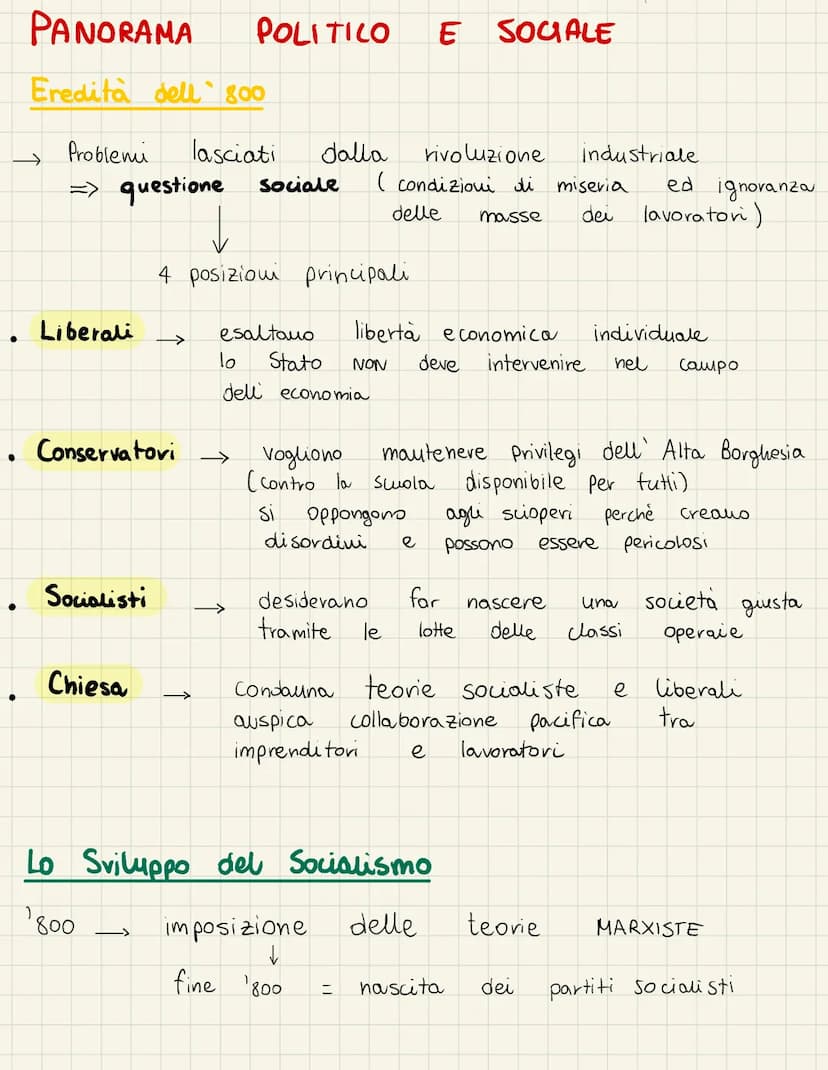 PANORAMA POLITICO E SOCIALE
Eredità dell'800
→ Problemi lasciati dalla rivoluzione industriale
=> questione sociale (condizioni di miseria ed ignoranza
delle masse dei lavoratori)
↓
4 posizioni principali
• Liberali → esaltano libertà economica individuale
lo Stato NON deve intervenire nel campo
dell'economia
• Conservatori → vogliono mantenere privilegi dell'Alta Borghesia
(contro la scuola disponibile per tutti)
si oppongono agli scioperi perchè creano
disordini e possono essere pericolosi
• Socialisti → desiderano far nascere una società giusta
tramite le lotte delle classi operaie
• Chiesa → condanna teorie socialiste e liberali
auspica collaborazione pacifica tra
imprenditori e lavoratori
Lo Sviluppo del Socialismo
'800 → imposizione delle teorie MARXISTE
↓
fine '800 = nascita dei partiti socialisti